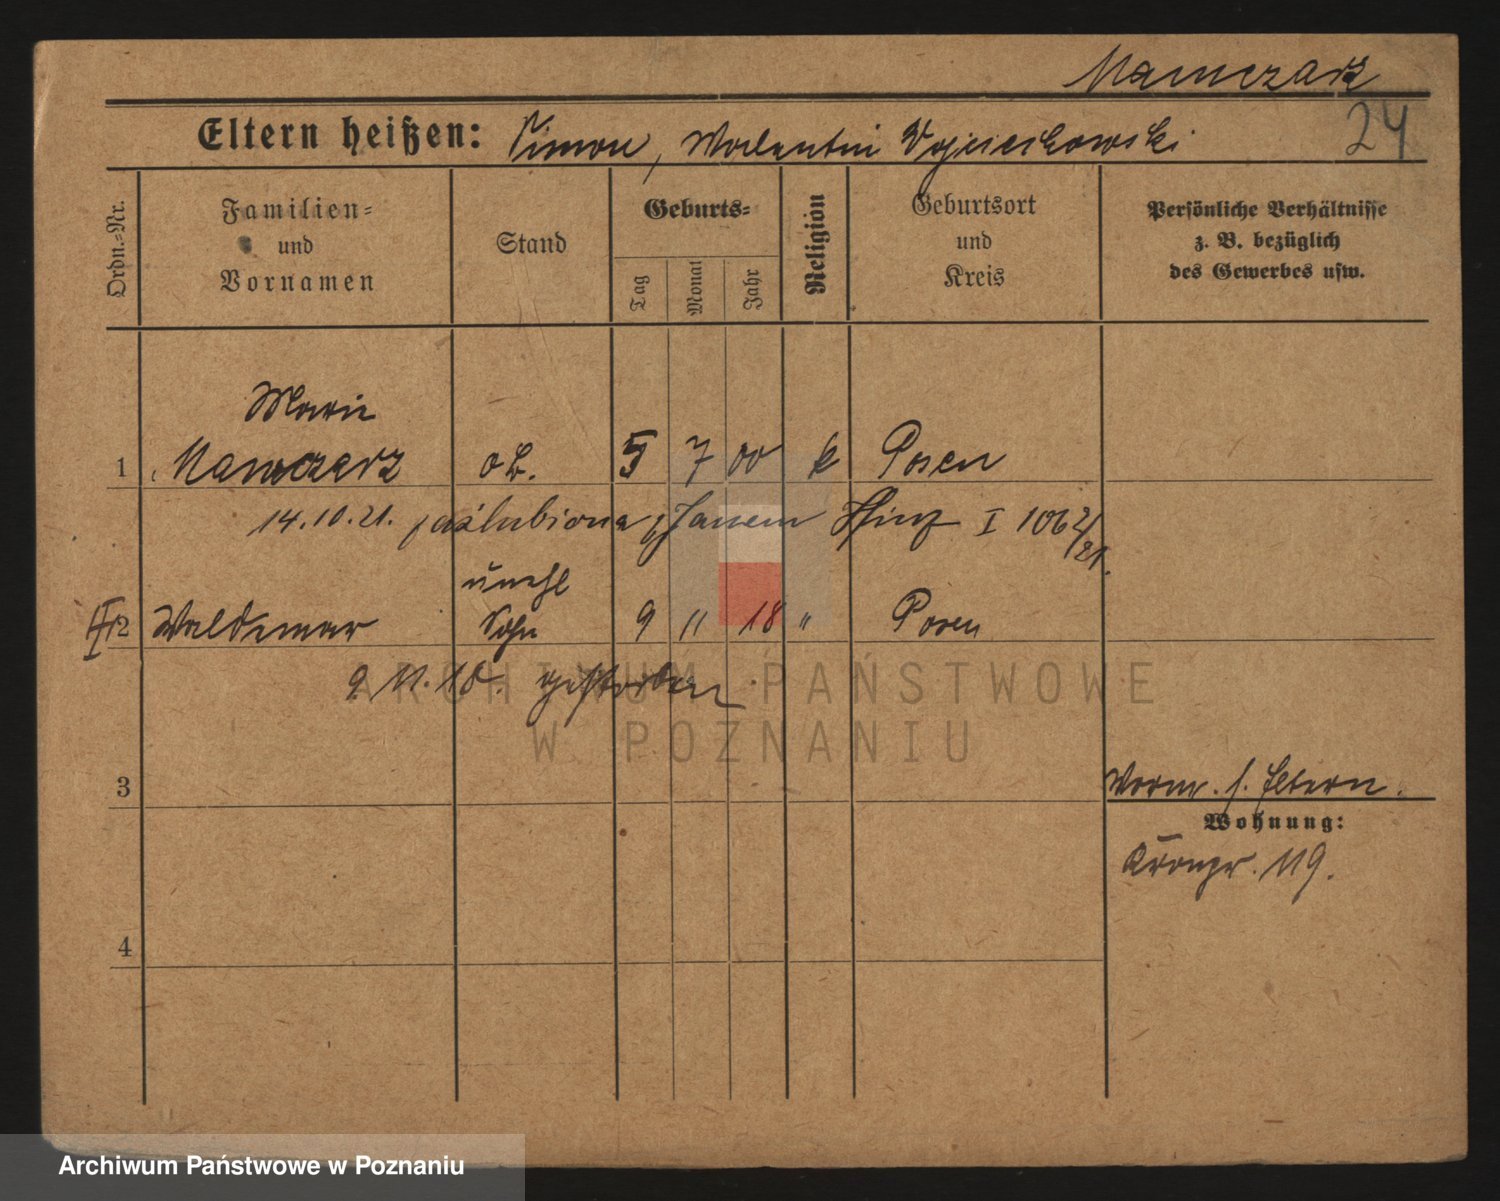 Mamczarz
24
Eltern heißen: Simon, Walentin Wojciechowski
Ordn.=Nr.
Familien=
und
Vornamen
Stand
Geburts=
Tag
Monat
Jahr
Religion
Geburtsort
und
Kreis
Persönliche Verhältnisse
z. B. bezüglich
des Gewerbes usw.
Marie
1 Mamczarz o.B. 5 7 00 k Posen
14.10.21. poślubiona Janem I 1062/21.
unehl
2 Waldemar Sohn 9 11 18 " Posen
9.11.18. gestorben
ARCHIWUM PAŃSTWOWE
W POZNANIU
3
Wormr. s. Eltern.
Wohnung:
Kronpr. 119.
4
Archiwum Państwowe w Poznaniu